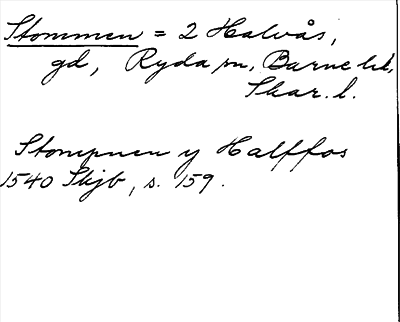 Stommen = 2 Halvås,
gd, Ryda sn, Barne hd,
Skar. l.
Stompnen y Halffos
1540 Skjb, s. 159.